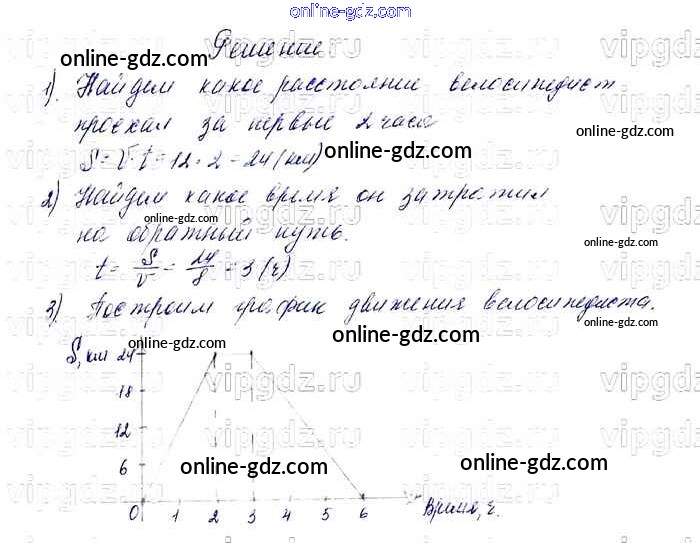 online-gdz.com
Решение
online-gdz.com
1). Найдем какое расстояние велосипедист
проехал за первые 2 часа
online-gdz.com
S = V · t = 12 · 2 = 24 (км)
online-gdz.com
online-gdz.com
2) Найдем какое время он затратил
online-gdz.com
на обратный путь.
online-gdz.com
t = S/V = 24/8 = 3 (ч)
3) Построим график движения велосипедиста.
online-gdz.com
online-gdz.com
online-gdz.com
S, км 24
18
12
6
online-gdz.com
online-gdz.com
0 1 2 3 4 5 6 Время, ч.
vipgdz.ru